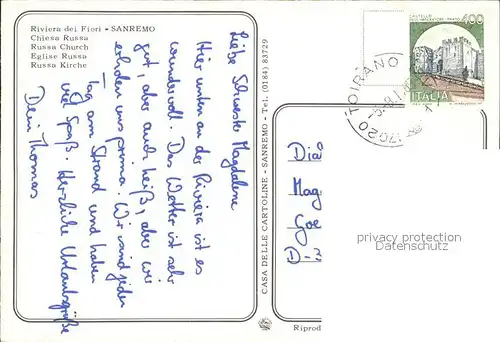 Riviera dei Fiori - SANREMO
Chiesa Russa
Russa Church
Eglise Russa
Russa Kirche
Liebe Schwester Magdalene
Hier unten an der Riviera ist es
wundervoll. Das Wetter ist sehr
gut, aber auch heiß, aber wir
erholen uns prima. Wir sind jeden
Tag am Strand und haben
viel Spaß. Herzliche Urlaubsgrüße
Dein Thomas
CASA DELLE CARTOLINE - SANREMO - Tel. (0184) 83729
CASTELLO
DELL'IMPERATORE - PRATO
400
ITALIA
17020 TOIRANO
Dia
Mag
Goe
D-
privacy protection
Datenschutz
Riprod